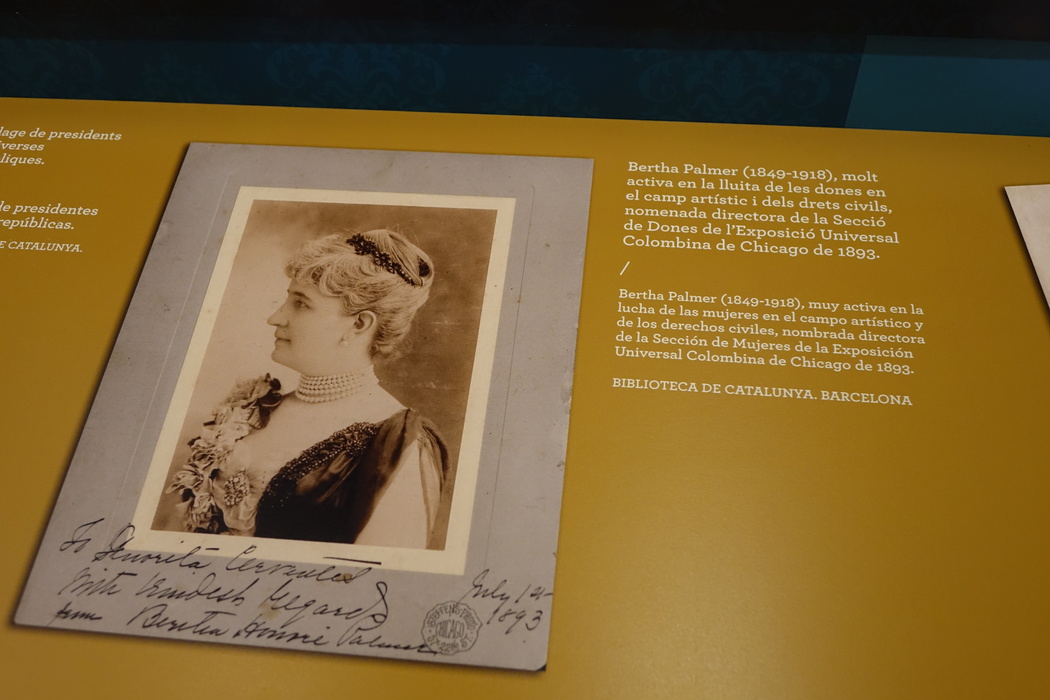 lage de presidents
iverses
liques.
de presidentes
repúblicas.
E CATALUNYA.
To Señorita Cervantes
With Kindest regards
from Bertha Honoré Palmer
July 12-
1893
CHICAGO
Bertha Palmer (1849-1918), molt
activa en la lluita de les dones en
el camp artístic i dels drets civils,
nomenada directora de la Secció
de Dones de l'Exposició Universal
Colombina de Chicago de 1893.
/
Bertha Palmer (1849-1918), muy activa en la
lucha de las mujeres en el campo artístico y
de los derechos civiles, nombrada directora
de la Sección de Mujeres de la Exposición
Universal Colombina de Chicago de 1893.
BIBLIOTECA DE CATALUNYA. BARCELONA